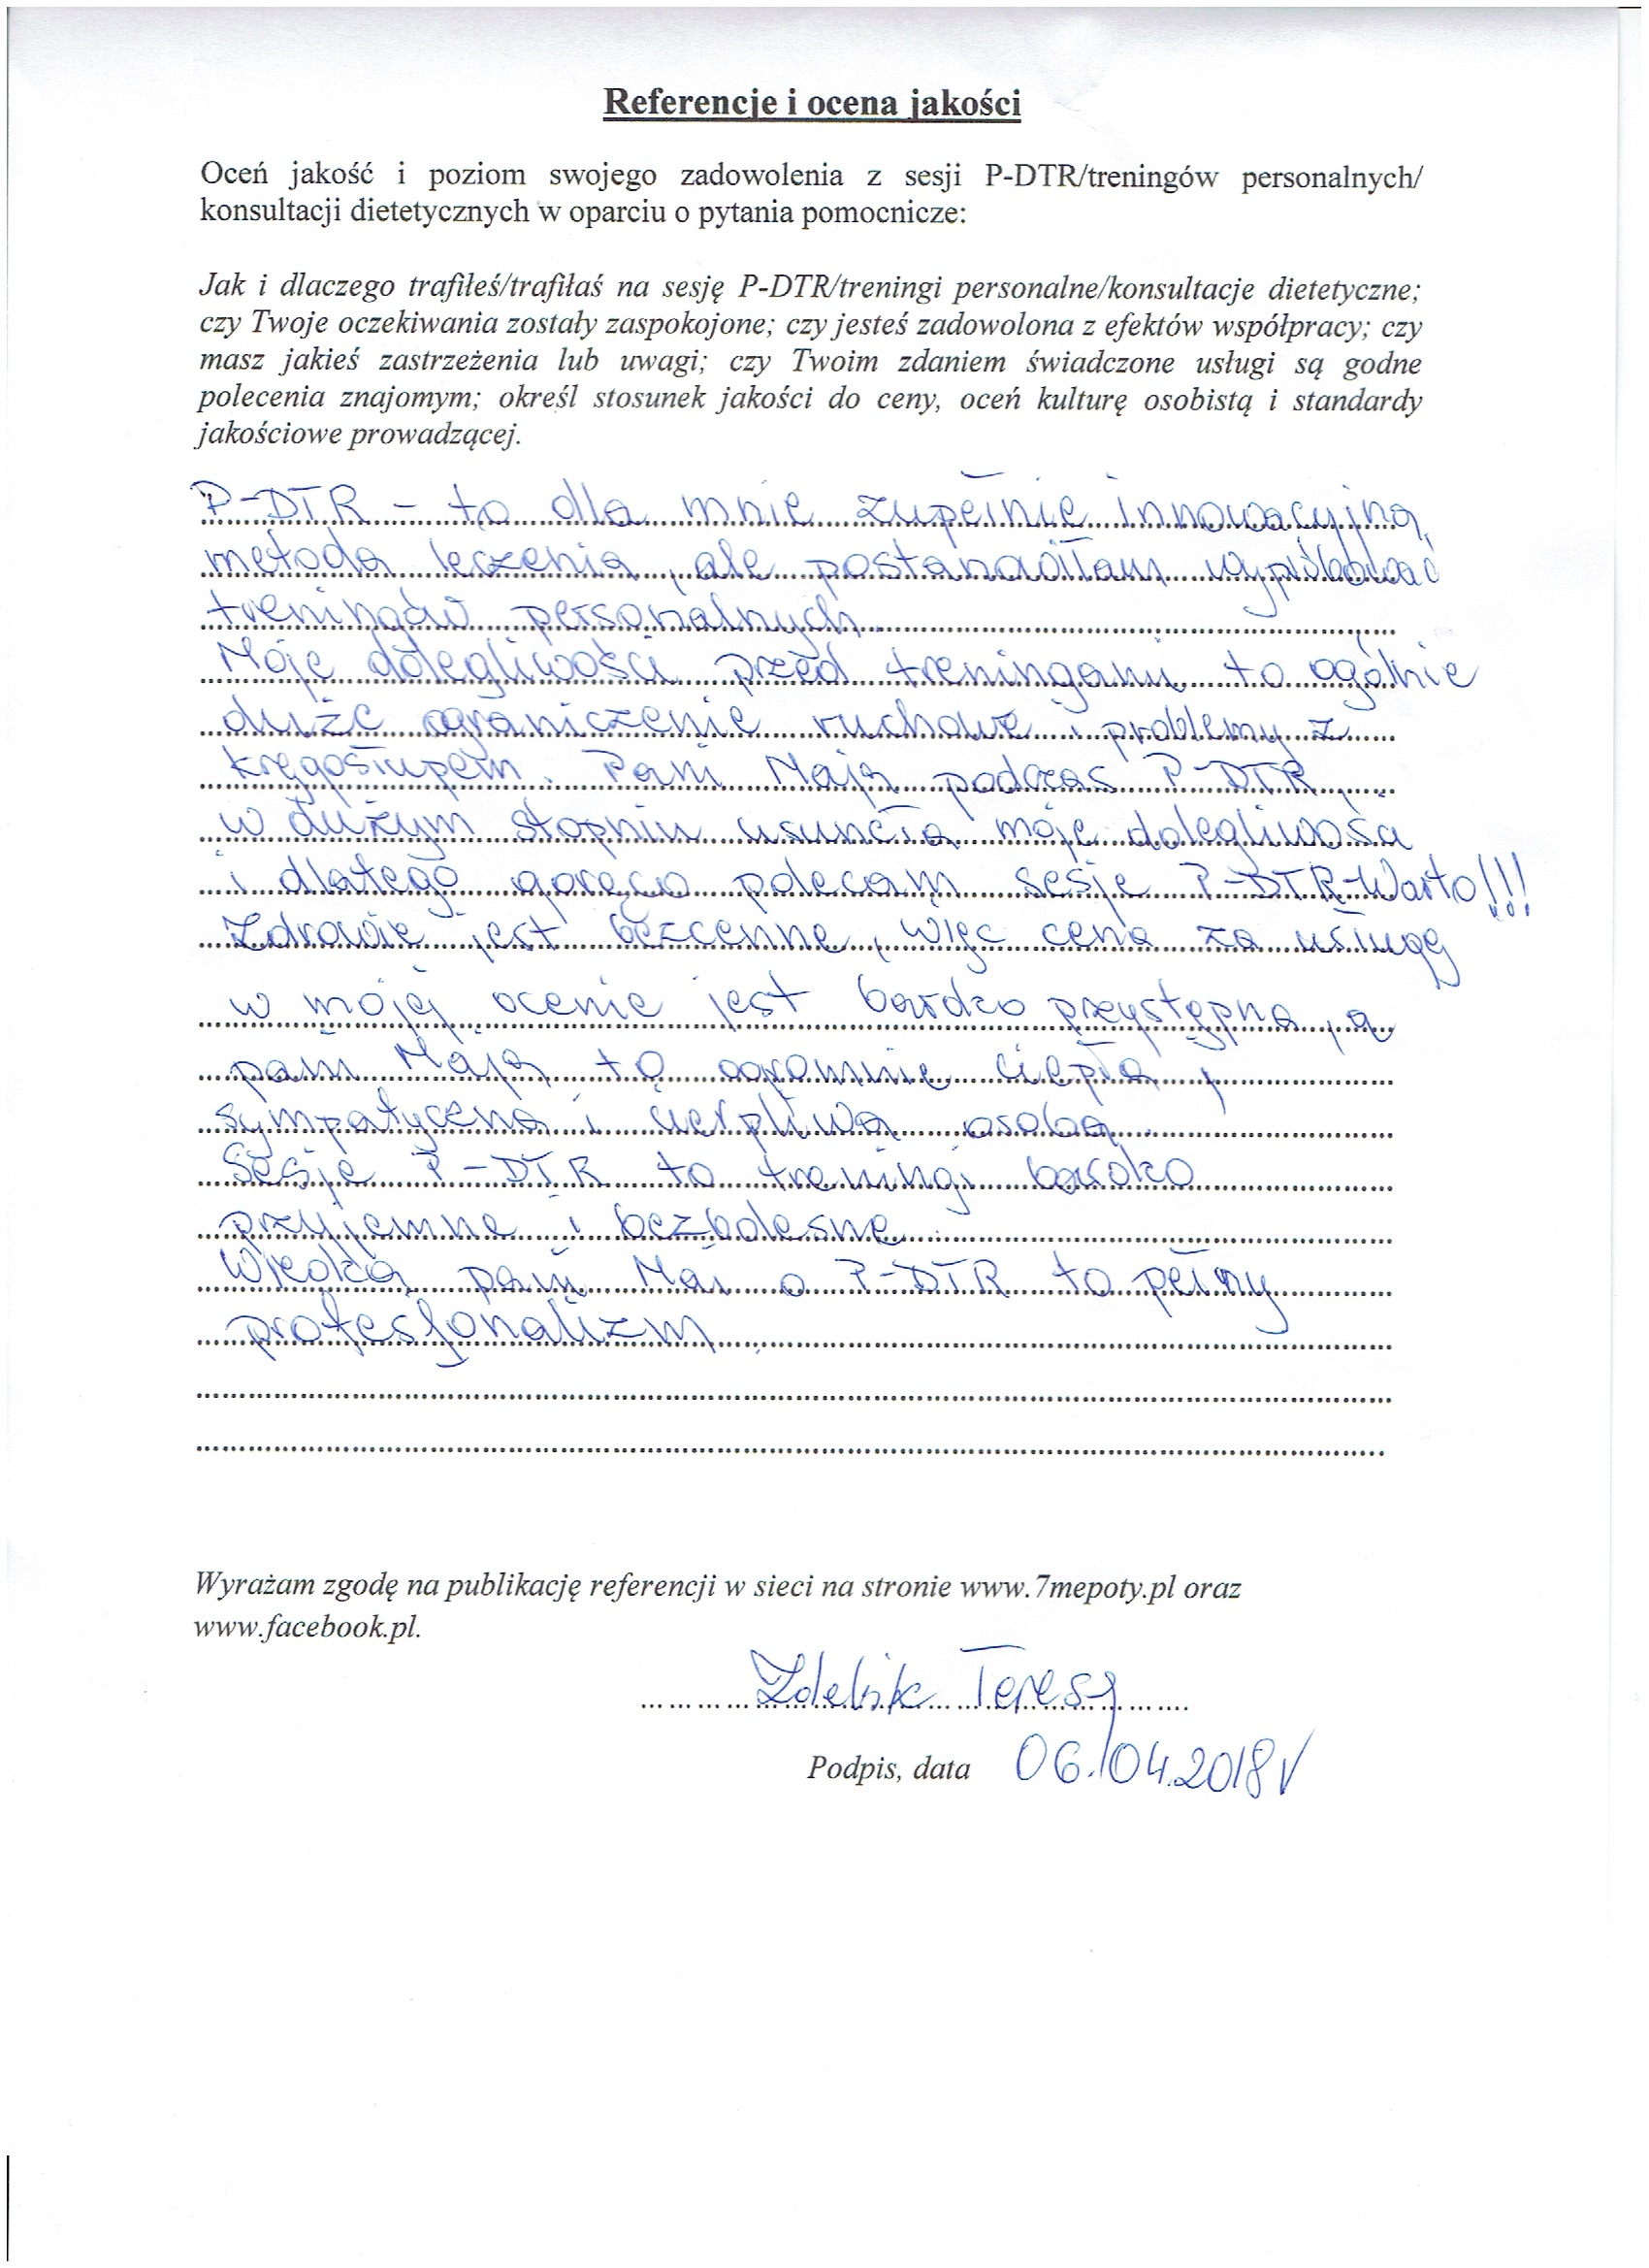 Referencje i ocena jakości
Oceń jakość i poziom swojego zadowolenia z sesji P-DTR/treningów personalnych/
konsultacji dietetycznych w oparciu o pytania pomocnicze:
Jak i dlaczego trafiłeś/trafiłaś na sesję P-DTR/treningi personalne/konsultacje dietetyczne;
czy Twoje oczekiwania zostały zaspokojone; czy jesteś zadowolona z efektów współpracy; czy
masz jakieś zastrzeżenia lub uwagi; czy Twoim zdaniem świadczone usługi są godne
polecenia znajomym; określ stosunek jakości do ceny, oceń kulturę osobistą i standardy
jakościowe prowadzącej.
P-DTR - to dla mnie zupełnie innowacyjna
metoda leczenia, ale postanowiłam wypróbować
treningów personalnych.
Moje dolegliwości przed treningami to ogólnie
duże ograniczenie ruchowe i problemy z
kręgosłupem. Pani Maja podczas P-DTR
w dużym stopniu usunęła moje dolegliwości
i dlatego gorąco polecam sesje P-DTR-Warto!!!
Zdrowie jest bezcenne, więc cena za usługę
w mojej ocenie jest bardzo przystępna, a
pani Maja to ogromnie ciepła,
sympatyczna i cierpliwa osoba.
Sesje P-DTR to treningi bardzo
przyjemne i bezbolesne.
Wiedza pani Mai o P-DTR to pełny
profesjonalizm.
Wyrażam zgodę na publikację referencji w sieci na stronie www.7mepoty.pl oraz
www.facebook.pl.
Zdebik Teresa
Podpis, data 06.04.2018r